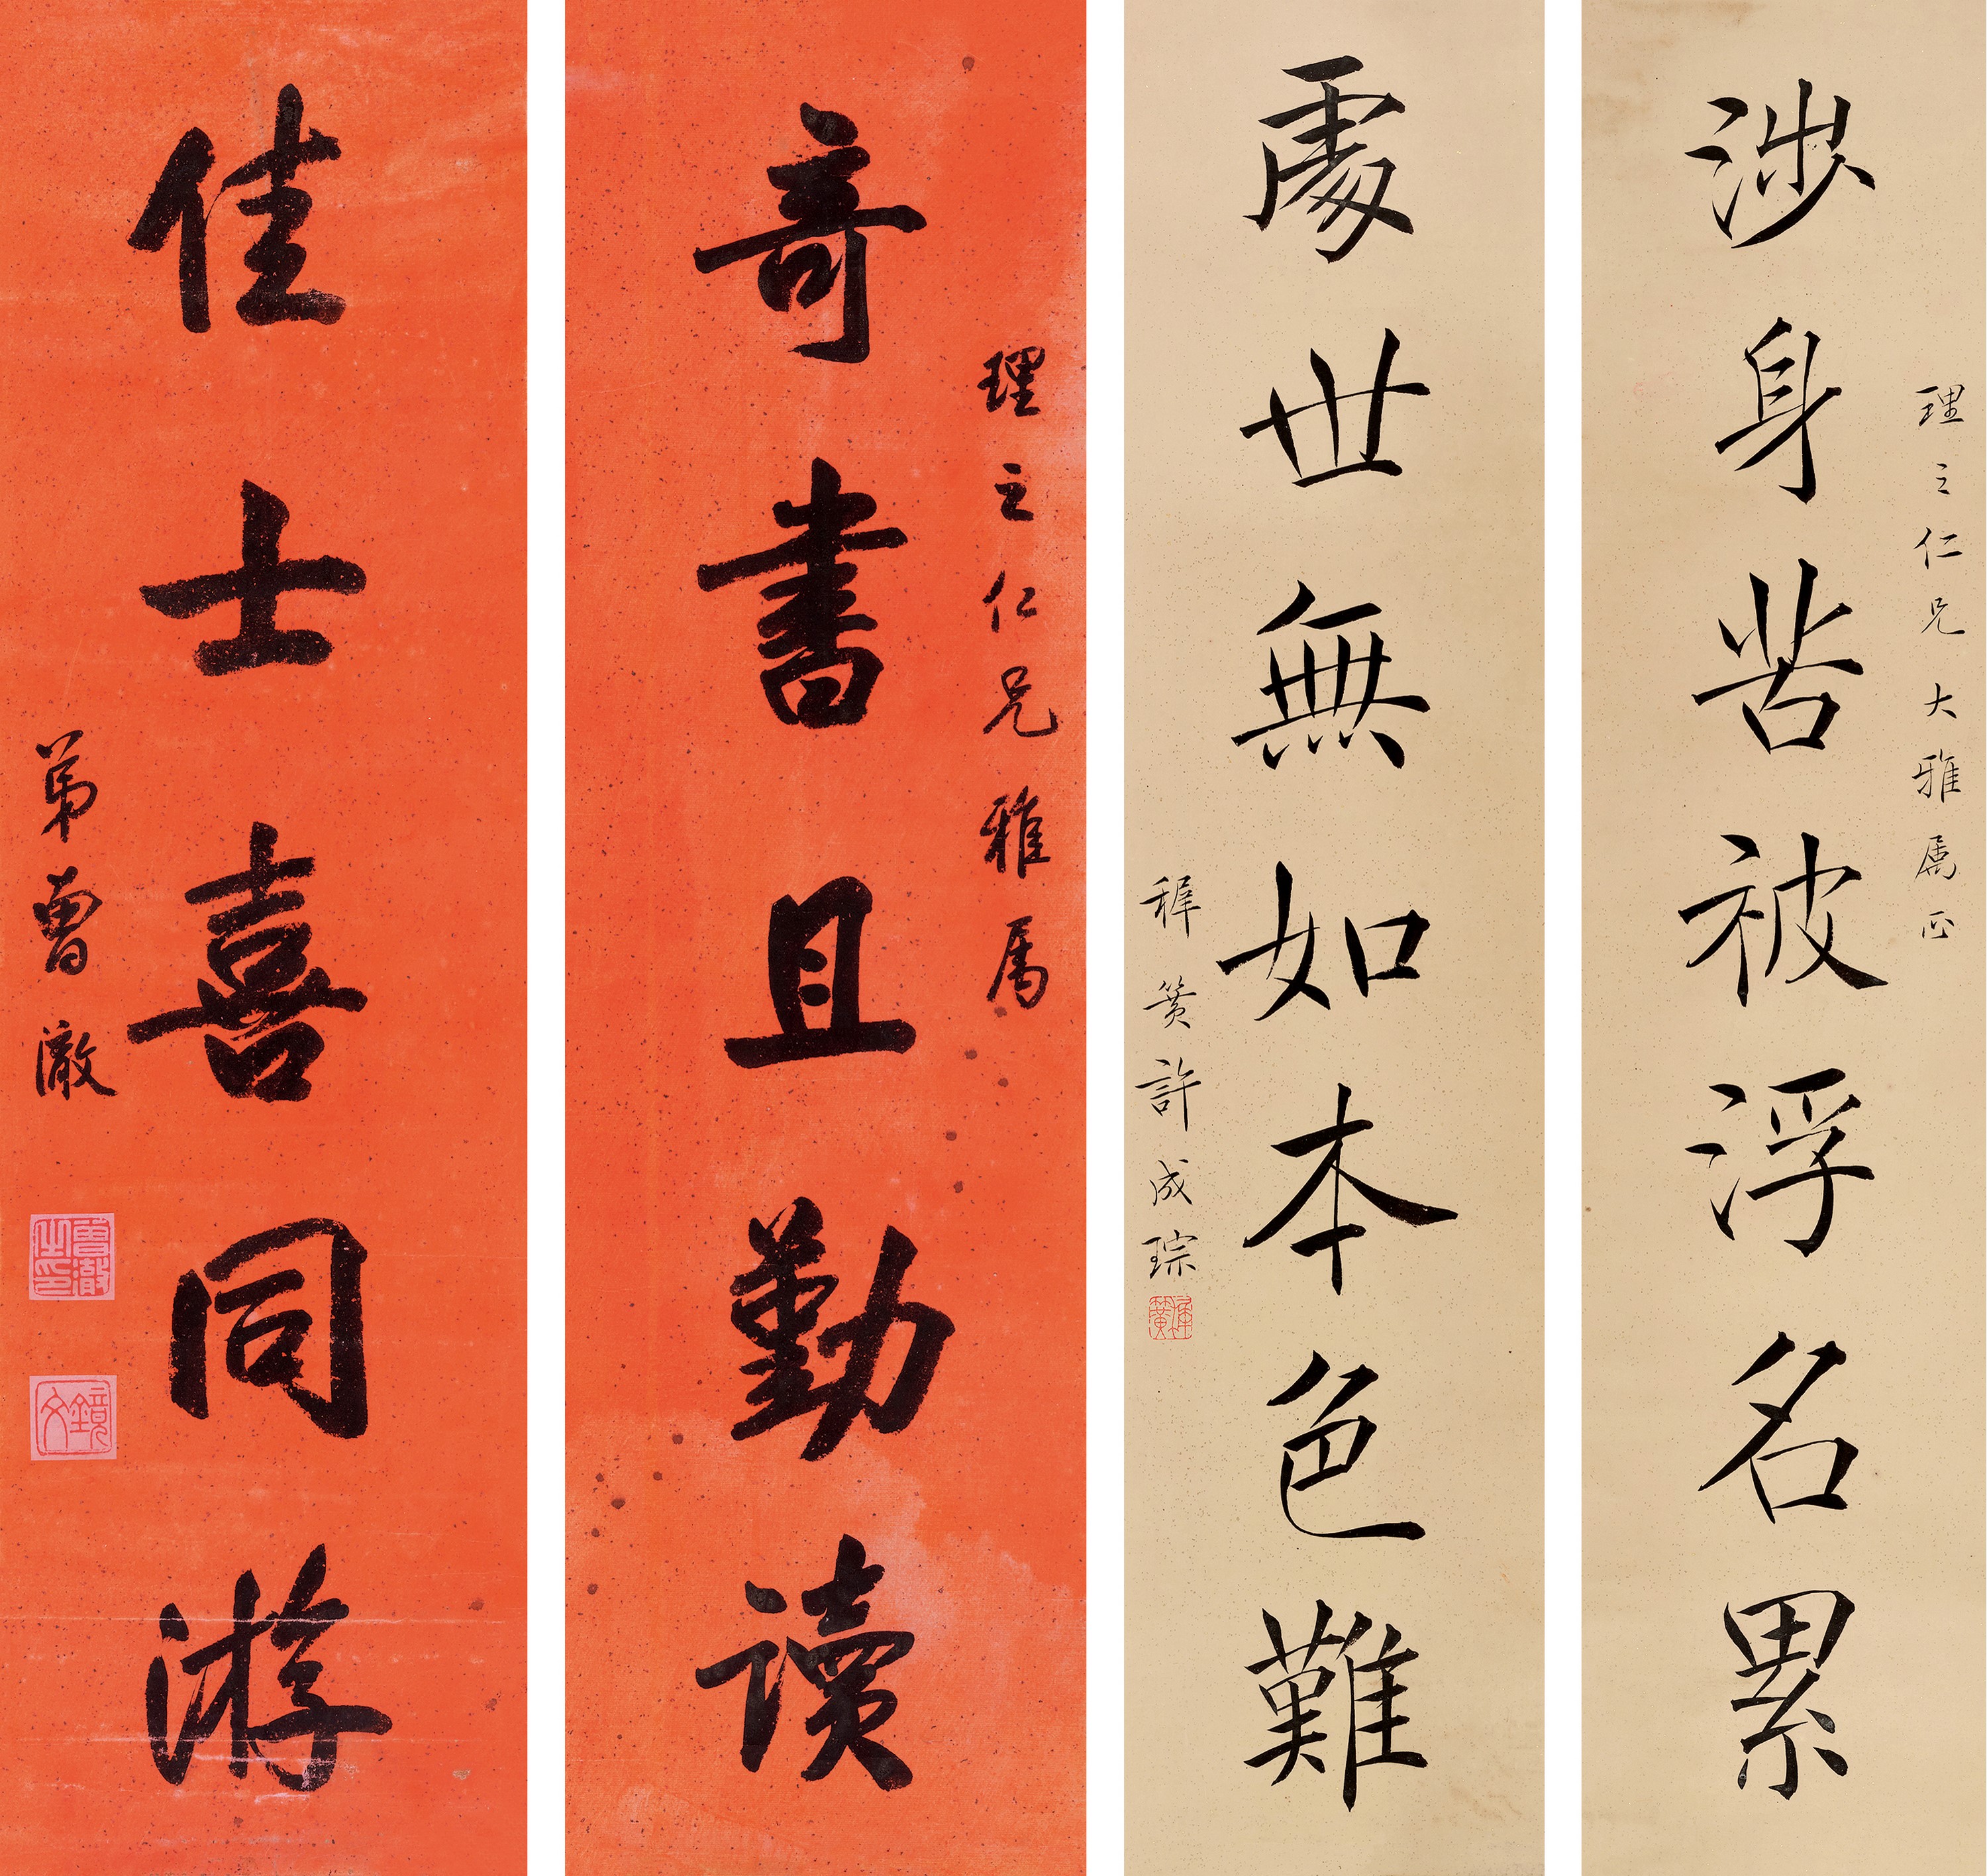 理之仁兄大雅属正
涉身苦被浮名累
處世無如本色難
稺簧許成琮
理之仁兄雅属
奇書且勤讀
佳士喜同游
弟曹澂
曹澂之印
鏡文